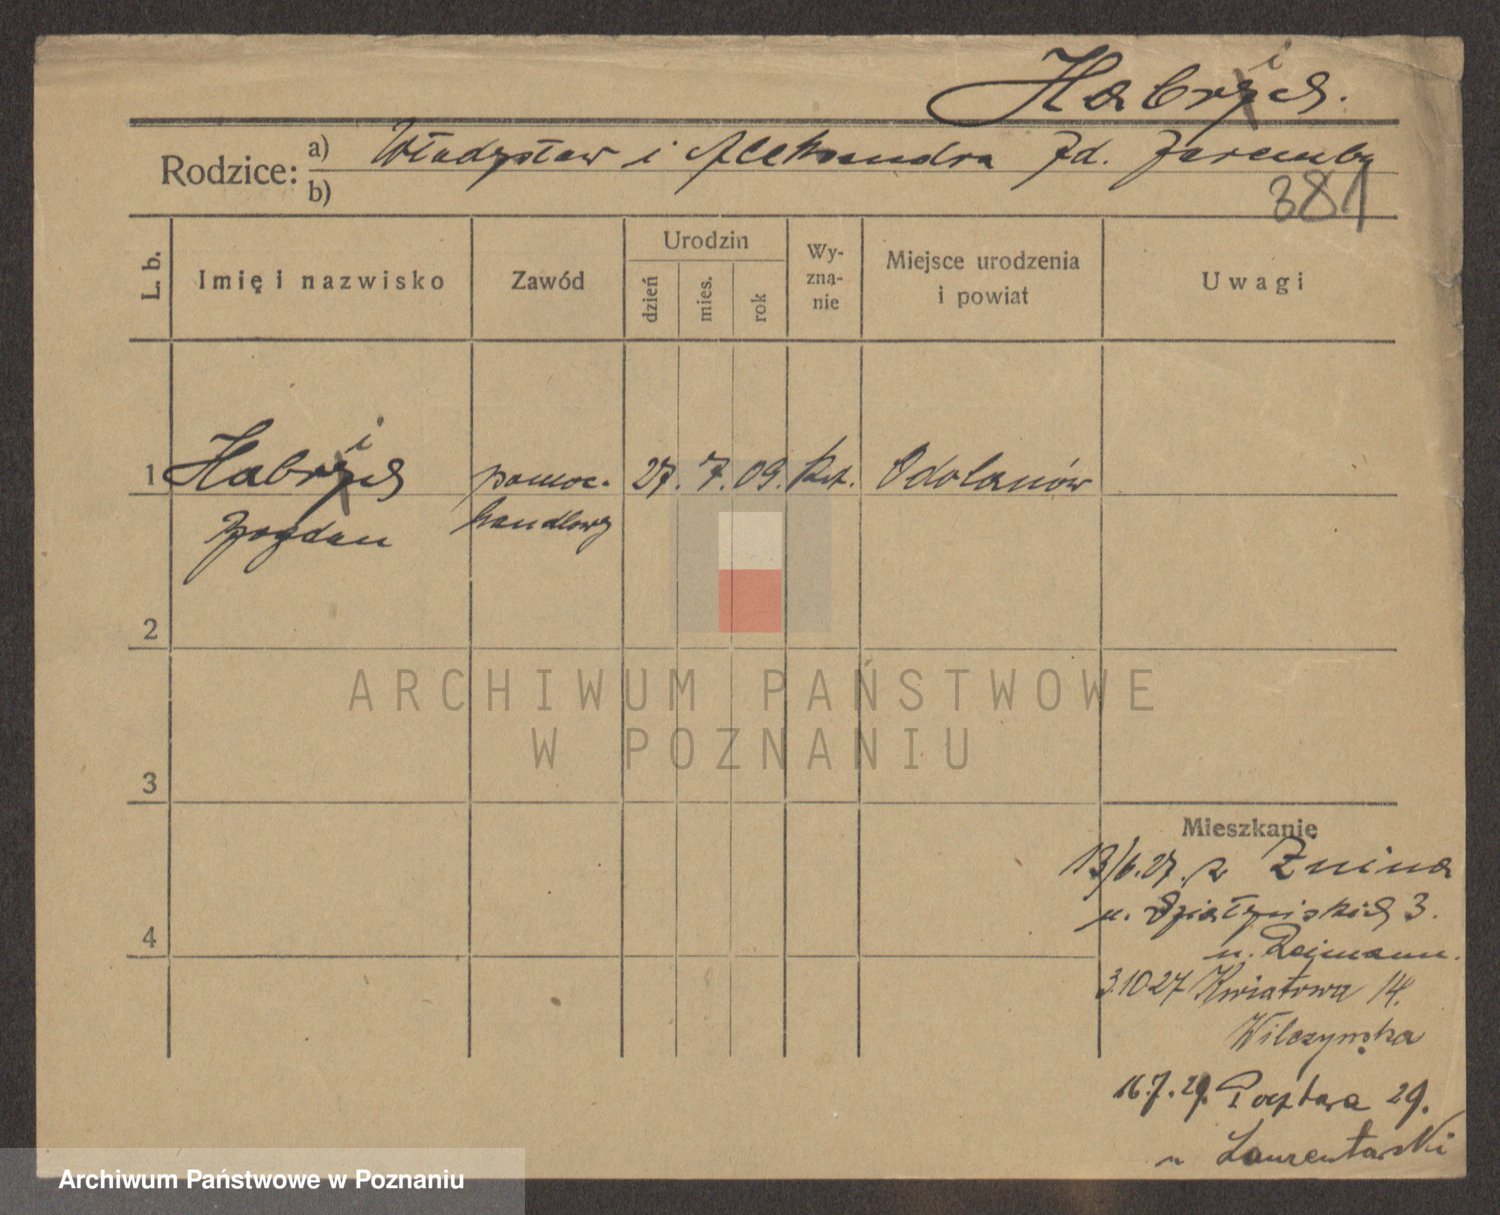 Habryel.
i
Rodzice: a) Władysław i Aleksandra zd. Zaremba
b)
381
L. b.
Imię i nazwisko
Zawód
Urodzin
dzień
mies.
rok
Wy-
zna-
nie
Miejsce urodzenia
i powiat
Uwagi
i
1 Habryel pomoc. 27. 7. 09. kat. Odolanów
Bogdan handlowy
2
ARCHIWUM PAŃSTWOWE
W POZNANIU
3
Mieszkanie
13/6.27. z Żnina
u. Działyńskich 3.
4
u. Rejmann.
3.10 27 Kwiatowa 14.
Wilczyńska
16.7.29. Pocztowa 29.
u Laurentowski
Archiwum Państwowe w Poznaniu